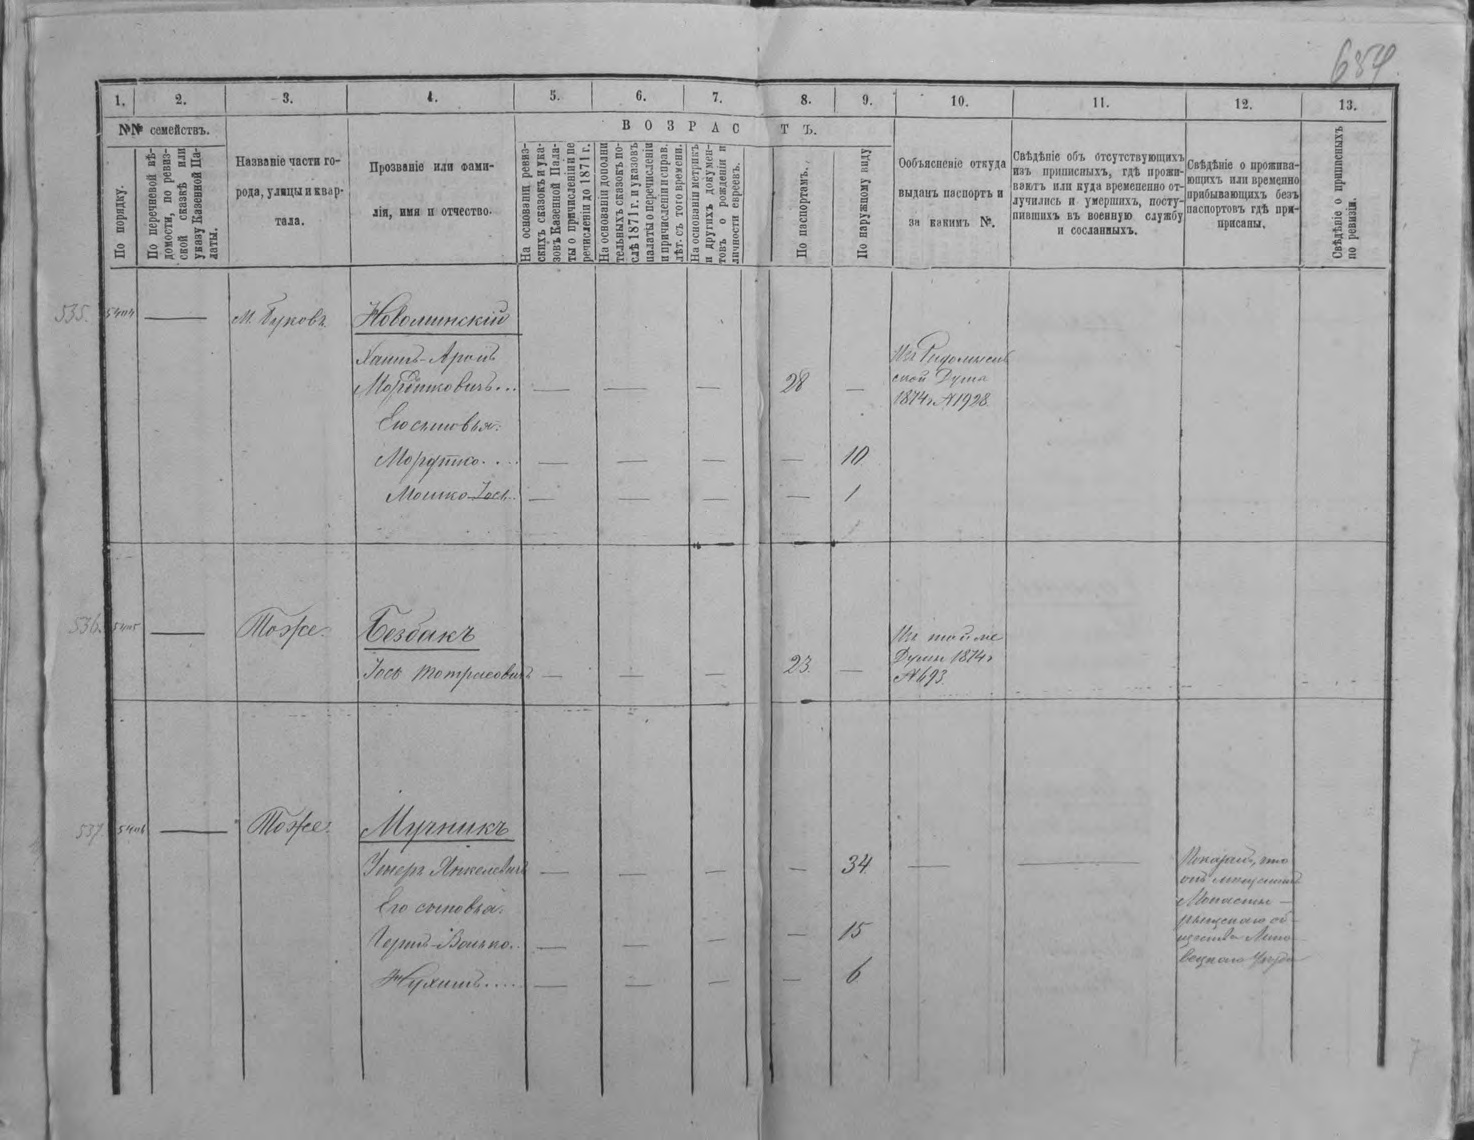 654
1. 2. 3. 4. 5. 6. 7. 8. 9. 10. 11. 12. 13.
№№ семействъ.
ВОЗРАСТЪ.
По порядку.
По перечневой вѣ-
домости, по ревиз-
ской сказкѣ или
указу Казенной Па-
латы.
Названіе части го-
рода, улицы и квар-
тала.
Прозваніе или фами-
лія, имя и отчество.
На основаніи ревиз-
скихъ сказокъ и ука-
зовъ Казенной Пала-
ты о причисленіи и пе
речисленіи до 1871 г.
На основаніи дополни
тельныхъ сказокъ по-
слѣ 1871 г. и указовъ
палаты о перечисленіи
и причисленіи и справ.
лѣт. съ того времени.
На основаніи метрикъ
и другихъ докумен-
товъ о рожденіи и
личности евреевъ.
По паспортамъ.
По наружному виду
Объясненіе откуда
выданъ паспортъ и
за какимъ №.
Свѣдѣніе объ отсутствующихъ
изъ приписныхъ, гдѣ прожи-
ваютъ или куда временно от-
лучились и умершихъ, посту-
пившихъ въ военную службу
и сосланныхъ.
Свѣдѣніе о прожива-
ющихъ или временно
прибывающихъ безъ
паспортовъ гдѣ при-
писаны.
Свѣдѣніе о приписныхъ
по ревизіи.
535. 5404 — М. Буковъ Новоминскій
Хаимъ-Аронъ
Мордковичъ... — — — 28 —
1874 г. №1928.
Его сыновья:
Мордко... — — — — 10
Мошко-Іось.. — — — — 1
536. 5405 — Тоже. Безбакъ
Іось — — — 23. —
Изъ той же
Думы 1874 г.
№ 693.
537. 5406 — Тоже. Мучникъ
Янкелевичъ — — — — 34. — —
Его сыновья:
— — — — 15
Нухимъ.... — — — — 6
Показалъ, что
онъ мѣщанинъ
Монасты-
рищскаго об-
щества Липо-
вецкаго уѣзда